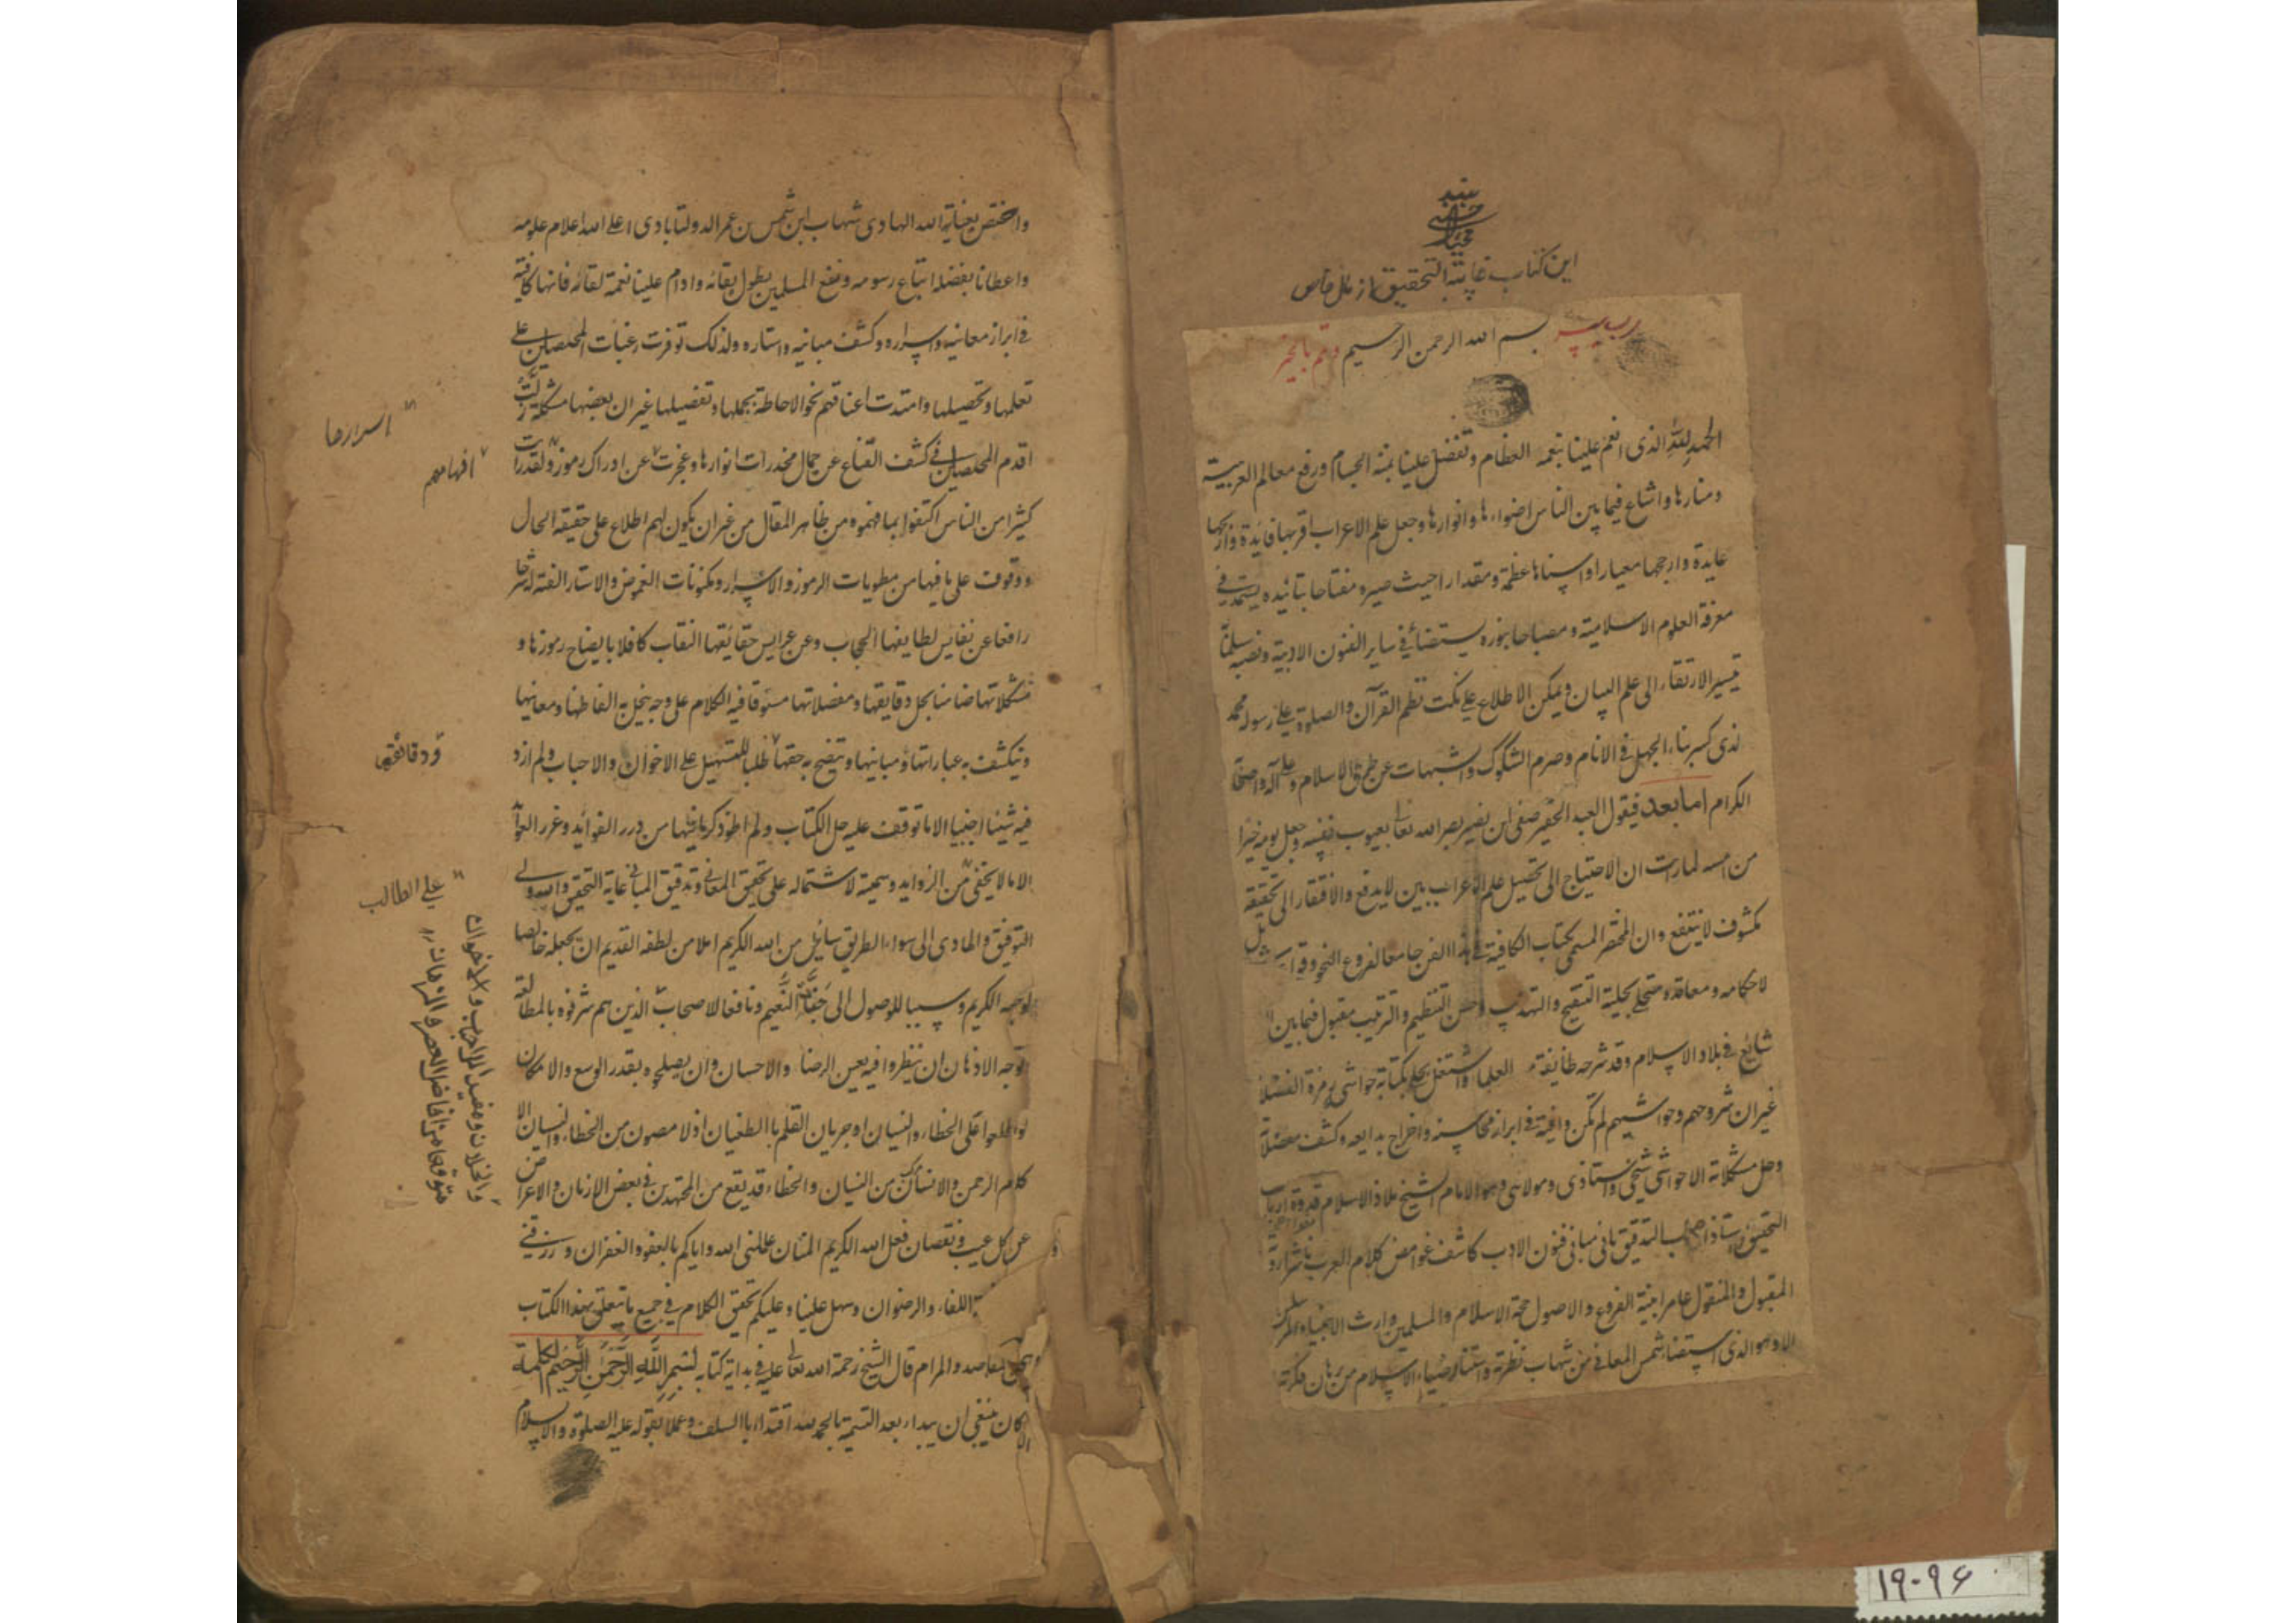 این کتاب غایة التحقیق از علل خاص
رب یسر بسم الله الرحمن الرحیم وتمم بالخیر
الحمد لله الذی انعم علینا بنعمه العظام وتفضل علینا بمننه الجسام ورفع معالم العربیة
ومنارها واشاع فیما بین الناس اضواءها وانوارها وجعل علم الاعراب اقربها فایدة وارجحها
عایدة وارجحها معیارا واسناها عظمة ومقدارا حیث صیره مفتاحا بتائیده یستمد فی
معرفة العلوم الاسلامیة ومصباحا بنوره یستضائ فی سایر الفنون الادبیة ونصبه سلما
تیسیر الارتقاء الی علم البیان ویمکن الاطلاع علی نکت نظم القرآن والصلوة علی رسوله محمد
لذی کسر بناء الجهل فی الانام وصرم الشکوک والشبهات عن طرق الاسلام وعلی آله واصحابه
الکرام اما بعد فیقول العبد الحقیر صفی ابن نصیر بصره الله تعالی بعیوب نفسه وجعل یومه خیرا
من امسه لما رأت ان الاحتیاج الی تحصیل علم الاعراب بین لا یدفع والافتقار الی تحقیقه
مکشوف لا ینتفع وان المختصر المسمی بکتاب الکافیة فی هذا الفن جامعا لفروع النحو وقوا
لاحکامه ومعاقده متحلی بحلیة التنقیح والتهذیب وحسن التنظیم والترتیب مقبول فیما بین
شائع فی بلاد الاسلام وقد شرحه طایفة العلماء واشتغل بحله بکتابة حواشی زمرة الفضلاء
غیر ان شروحهم وحواشیهم لم تکن وافیة فی ابراز محاسنه واخراج بدایعه وکشف معضلاته
وحل مشکلاته الا حواشی شیخی واستاذی ومولائی وهو الامام الشیخ ملاذ الاسلام قدوة ارباب
التحقیق استاذ اصحاب التدقیق بانی مبانی فنون الادب کاشف غوامض کلام العرب
المقبول والمنقول عامر ابنیة الفروع والاصول حجة الاسلام والمسلمین وارث الانبیاء
الا وهو الذی استضاء شمس المعانی من شهاب نظره واستنار ضیاء الاسلام من برهان فکرته
واختص بعنایة الله الهادی شهاب ابن شمس بن عمر الدولتابادی اعلی الله اعلام علومه
واعطانا بفضله اتباع رسومه ونفع المسلمین بطول بقائه وادام علینا نعمة لقائه فانها کافیة
فی ابراز معانیه واسراره وکشف مبانیه واستاره ولذلک توفرت رغبات المحصلین علی
تعلمها وتحصیلها وامتدت اعناقهم نحو الاحاطة بجملها وتفصیلها غیر ان بعضها مشکلة زلت
اقدم المحصلین فی کشف القناع عن جمال مخدرات انوارها وعجزت عن ادراک رموز ولقد رأیت
کثیرا من الناس اکتفوا بما فهموه من ظاهر المقال من غیر ان یکون لهم اطلاع علی حقیقة الحال
ووقوف علی ما فیها من مطویات الرموز والاسرار ومکنونات الغموض والاستار الفته شرحا
رافعا عن نفایس لطایفها الحجاب وعن عرایس حقایقها النقاب کافلا بایضاح رموزها و
مشکلاتها ضامنا بحل دقایقها ومعضلاتها مسوقا فیه الکلام علی وجه ینحل به الفاظها ومعانیها
وینکشف به عباراتها ومبانیها ویتضح به حقها طلبا للتسهیل علی الاخوان والاحباب ولم ازد
فیه شیئا اجنبیا الا ما توقف علیه حل الکتاب ولم اطو ذکر ما فیها من درر الفواید وغرر العوا
الا ما لا یخفی من الزواید وسمیته لاشتماله علی تحقیق المعانی وتدقیق المبانی غایة التحقیق والله ولی
التوفیق والهادی الی سواء الطریق سائلا من الله الکریم املا من لطفه القدیم ان یجعله خالصا
لوجهه الکریم وسببا للوصول الی جنات النعیم ونافعا لاصحاب الذین هم شرفوه بالمطالعة
توجه الاذهان ان ینظروا فیه بعین الرضا والاحسان وان یصلحوه بقدر الوسع والامکان
لو اطلعوا علی الخطاء والنسیان او جریان القلم بالطغیان اذ لا مصون من الخطاء والنسیان الا
کلام الرحمن والانسان من النسیان والخطاء قد یقع من المجتهدین فی بعض الازمان والاعراض
عن کل عیب ونقصان فعل الله الکریم المنان عاملنی الله وایاکم بالعفو والغفران ورزقنی
اللقاء والرضوان وسهل علینا وعلیکم تحقیق الکلام فی جمیع ما یتعلق بهذا الکتاب
المقاصد والمرام قال الشیخ رحمة الله تعالی علیه فی بدایة کتابه بسم الله الرحمن الرحیم الکلمة
کان ینبغی ان یبداء بعد التسمیة بالحمد لله اقتداء بالسلف وعملا بقوله علیه الصلوة والسلام
اسرارها
افهامهم
ودقائقها
علی الطالب
والخلان ومفید للاحباب والاخوان
متوقعا من افاضل العصر والزمان
۱۹۰۹۶